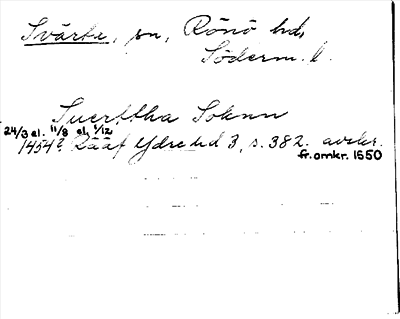 Svärta, sn, Rönö hd,
Söderm. l.
Suerttha Soknn
24/3 el. 11/8 el. 1/12
1454? Rääf Ydre hd 3, s. 382. avskr.
fr. omkr. 1550